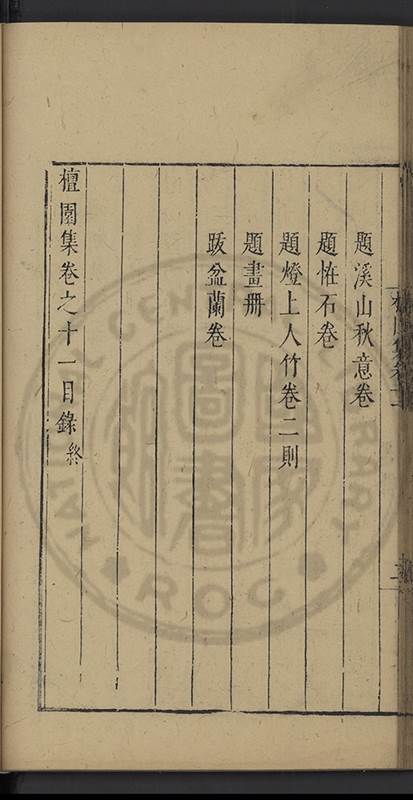 題溪山秋意卷
題怪石卷
題燈上人竹卷二則
題畫册
跋盆蘭卷
檀園集卷之十一目錄終